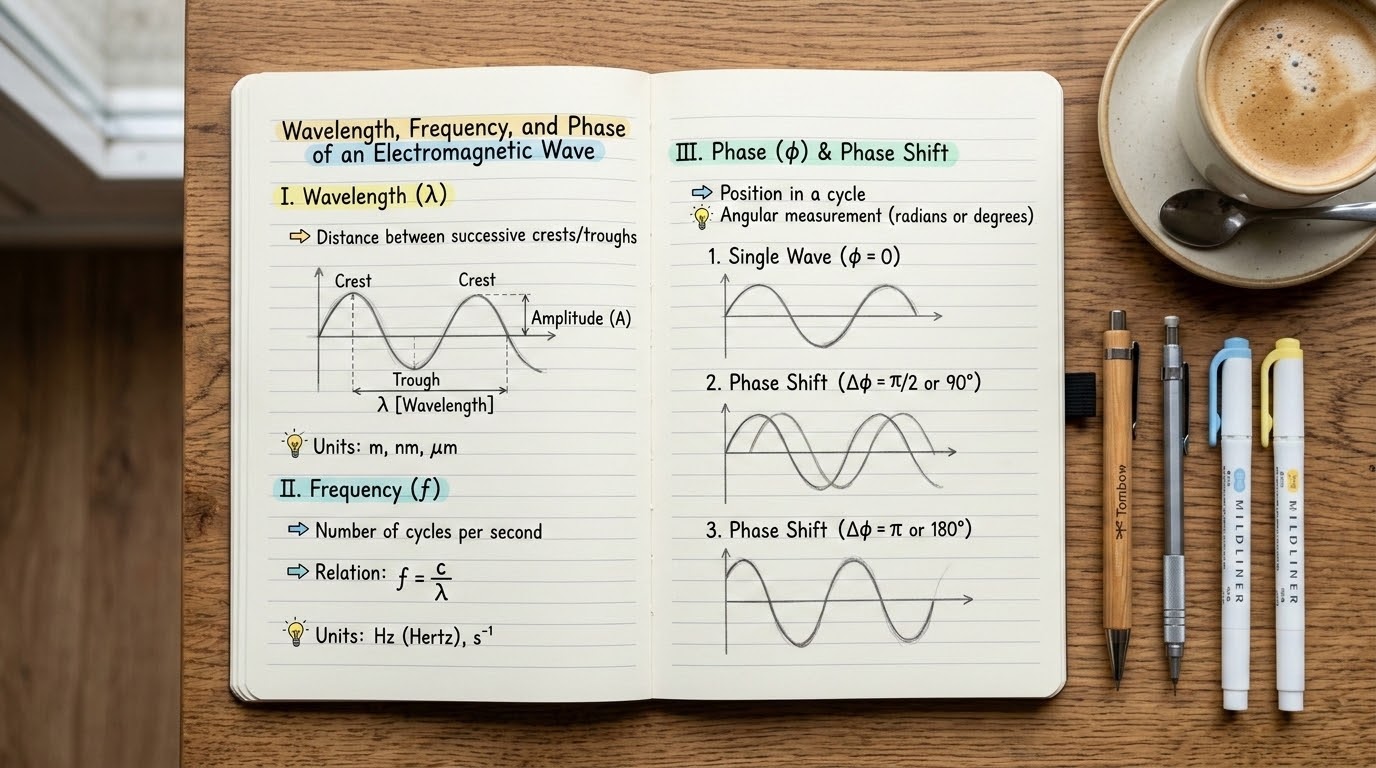 Wavelength, Frequency, and Phase
of an Electromagnetic Wave
I. Wavelength (λ)
⇨ Distance between successive crests/troughs
Crest
Crest
Amplitude (A)
Trough
λ [Wavelength]
Units: m, nm, μm
II. Frequency (f)
⇨ Number of cycles per second
⇨ Relation: f = c/λ
Units: Hz (Hertz), s⁻¹
III. Phase (ϕ) & Phase Shift
⇨ Position in a cycle
Angular measurement (radians or degrees)
1. Single Wave (ϕ = 0)
2. Phase Shift (Δϕ = π/2 or 90°)
3. Phase Shift (Δϕ = π or 180°)
Tombow
MILDLINER
MILDLINER